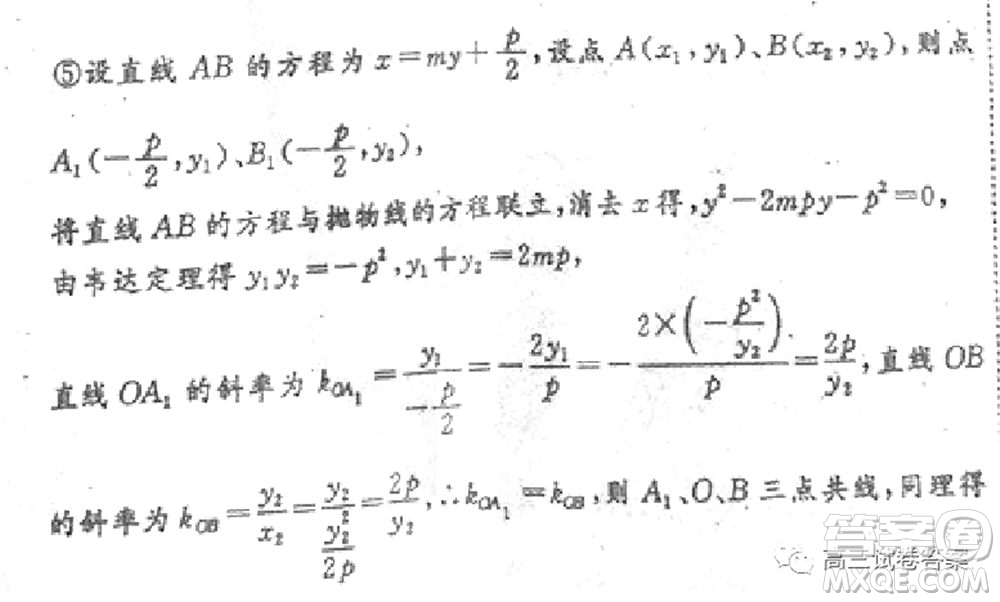 ⑤设直线 AB 的方程为 x=my+p/2,设点 A(x₁,y₁)、B(x₂,y₂),则点
A₁(-p/2,y₁)、B₁(-p/2,y₂),
将直线 AB 的方程与抛物线的方程联立,消去 x 得,y²-2mpy-p²=0,
由韦达定理得 y₁y₂=-p²,y₁+y₂=2mp,
直线 OA₁ 的斜率为 k_{OA₁}=y₁/(-p/2)=-2y₁/p=-(2×(-p²/y₂))/p=2p/y₂,直线 OB
的斜率为 k_{OB}=y₂/x₂=y₂/(y₂²/2p)=2p/y₂,∴k_{OA₁}=k_{OB},则 A₁、O、B 三点共线,同理得
答案圈
高三试卷答案
MXQE.COM